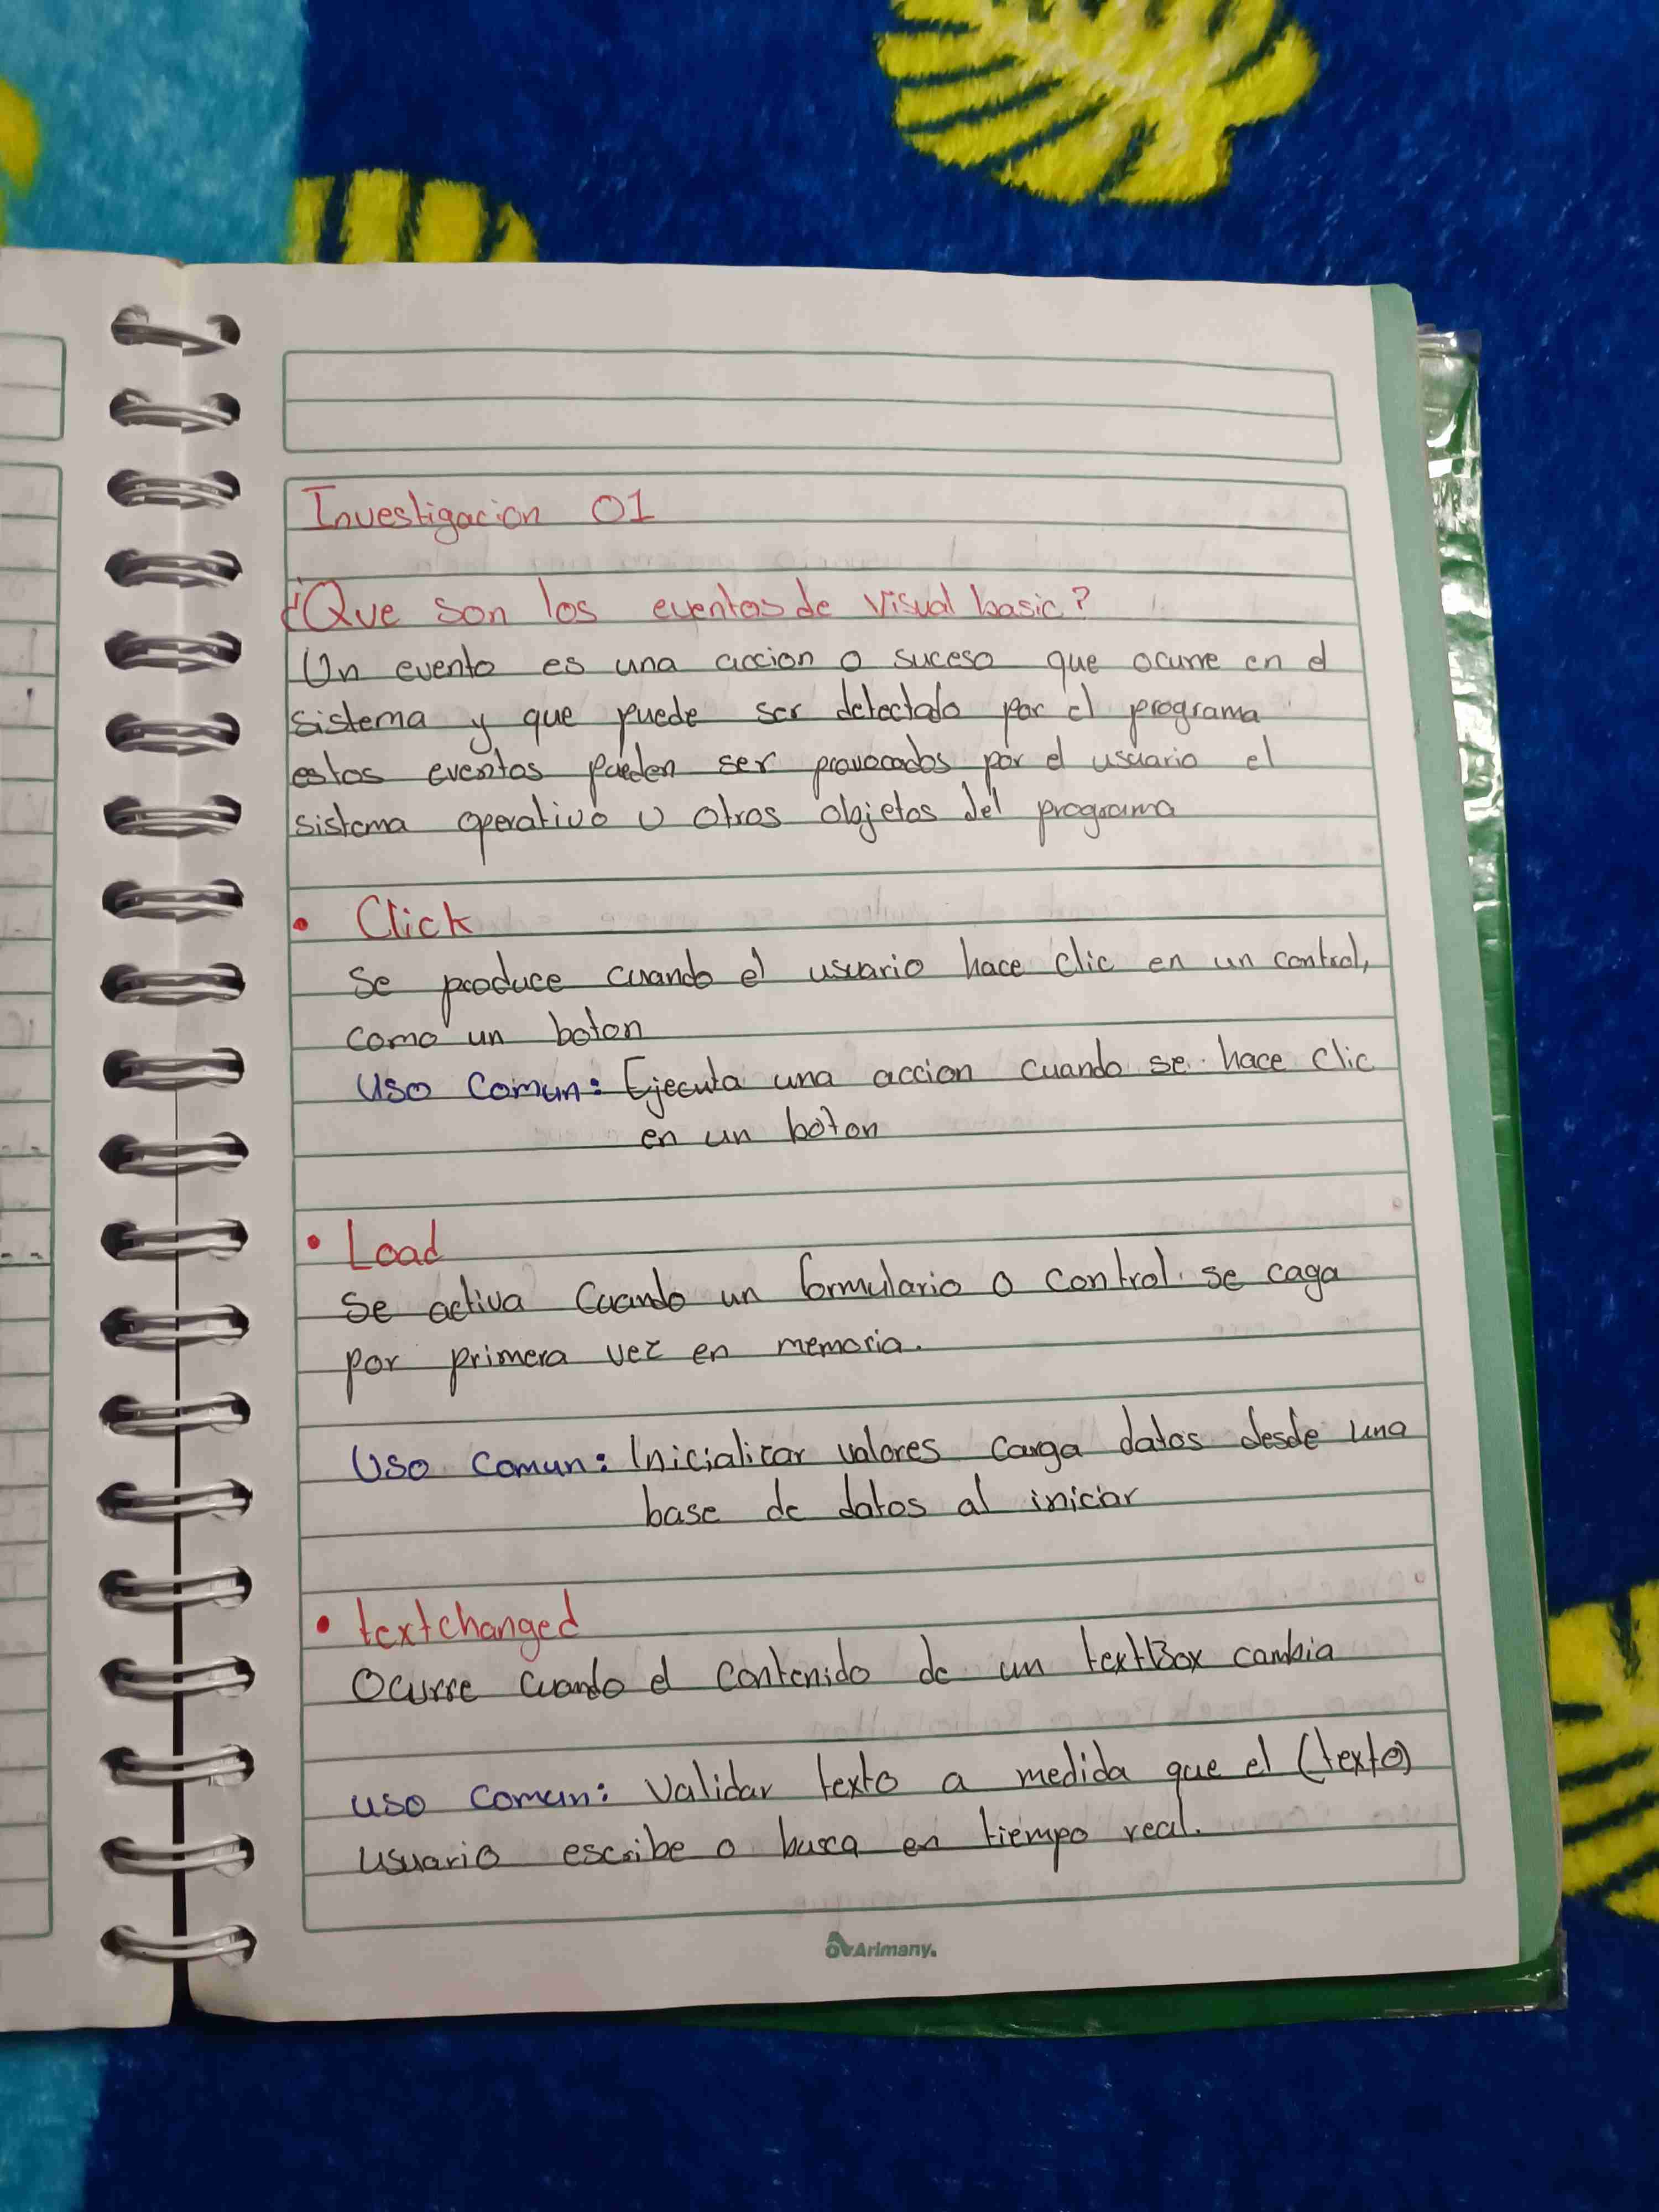 Investigacion 01
¿Que son los eventos de visual basic?
Un evento es una accion o suceso que ocurre en el
sistema y que puede ser detectado por el programa
estos eventos pueden ser provocados por el usuario el
sistema operativo u otros objetos del programa
• Click
Se produce cuando el usuario hace clic en un control,
como un boton
Uso Comun: Ejecuta una accion cuando se hace clic
en un boton
• Load
Se activa Cuando un formulario o control se caga
por primera vez en memoria.
Uso Comun: Inicializar valores carga datos desde una
base de datos al iniciar
• textchanged
Ocurre cuando el contenido de un textBox cambia
uso comun: Validar texto a medida que el (texto)
usuario escribe o busca en tiempo real.
Arimany.